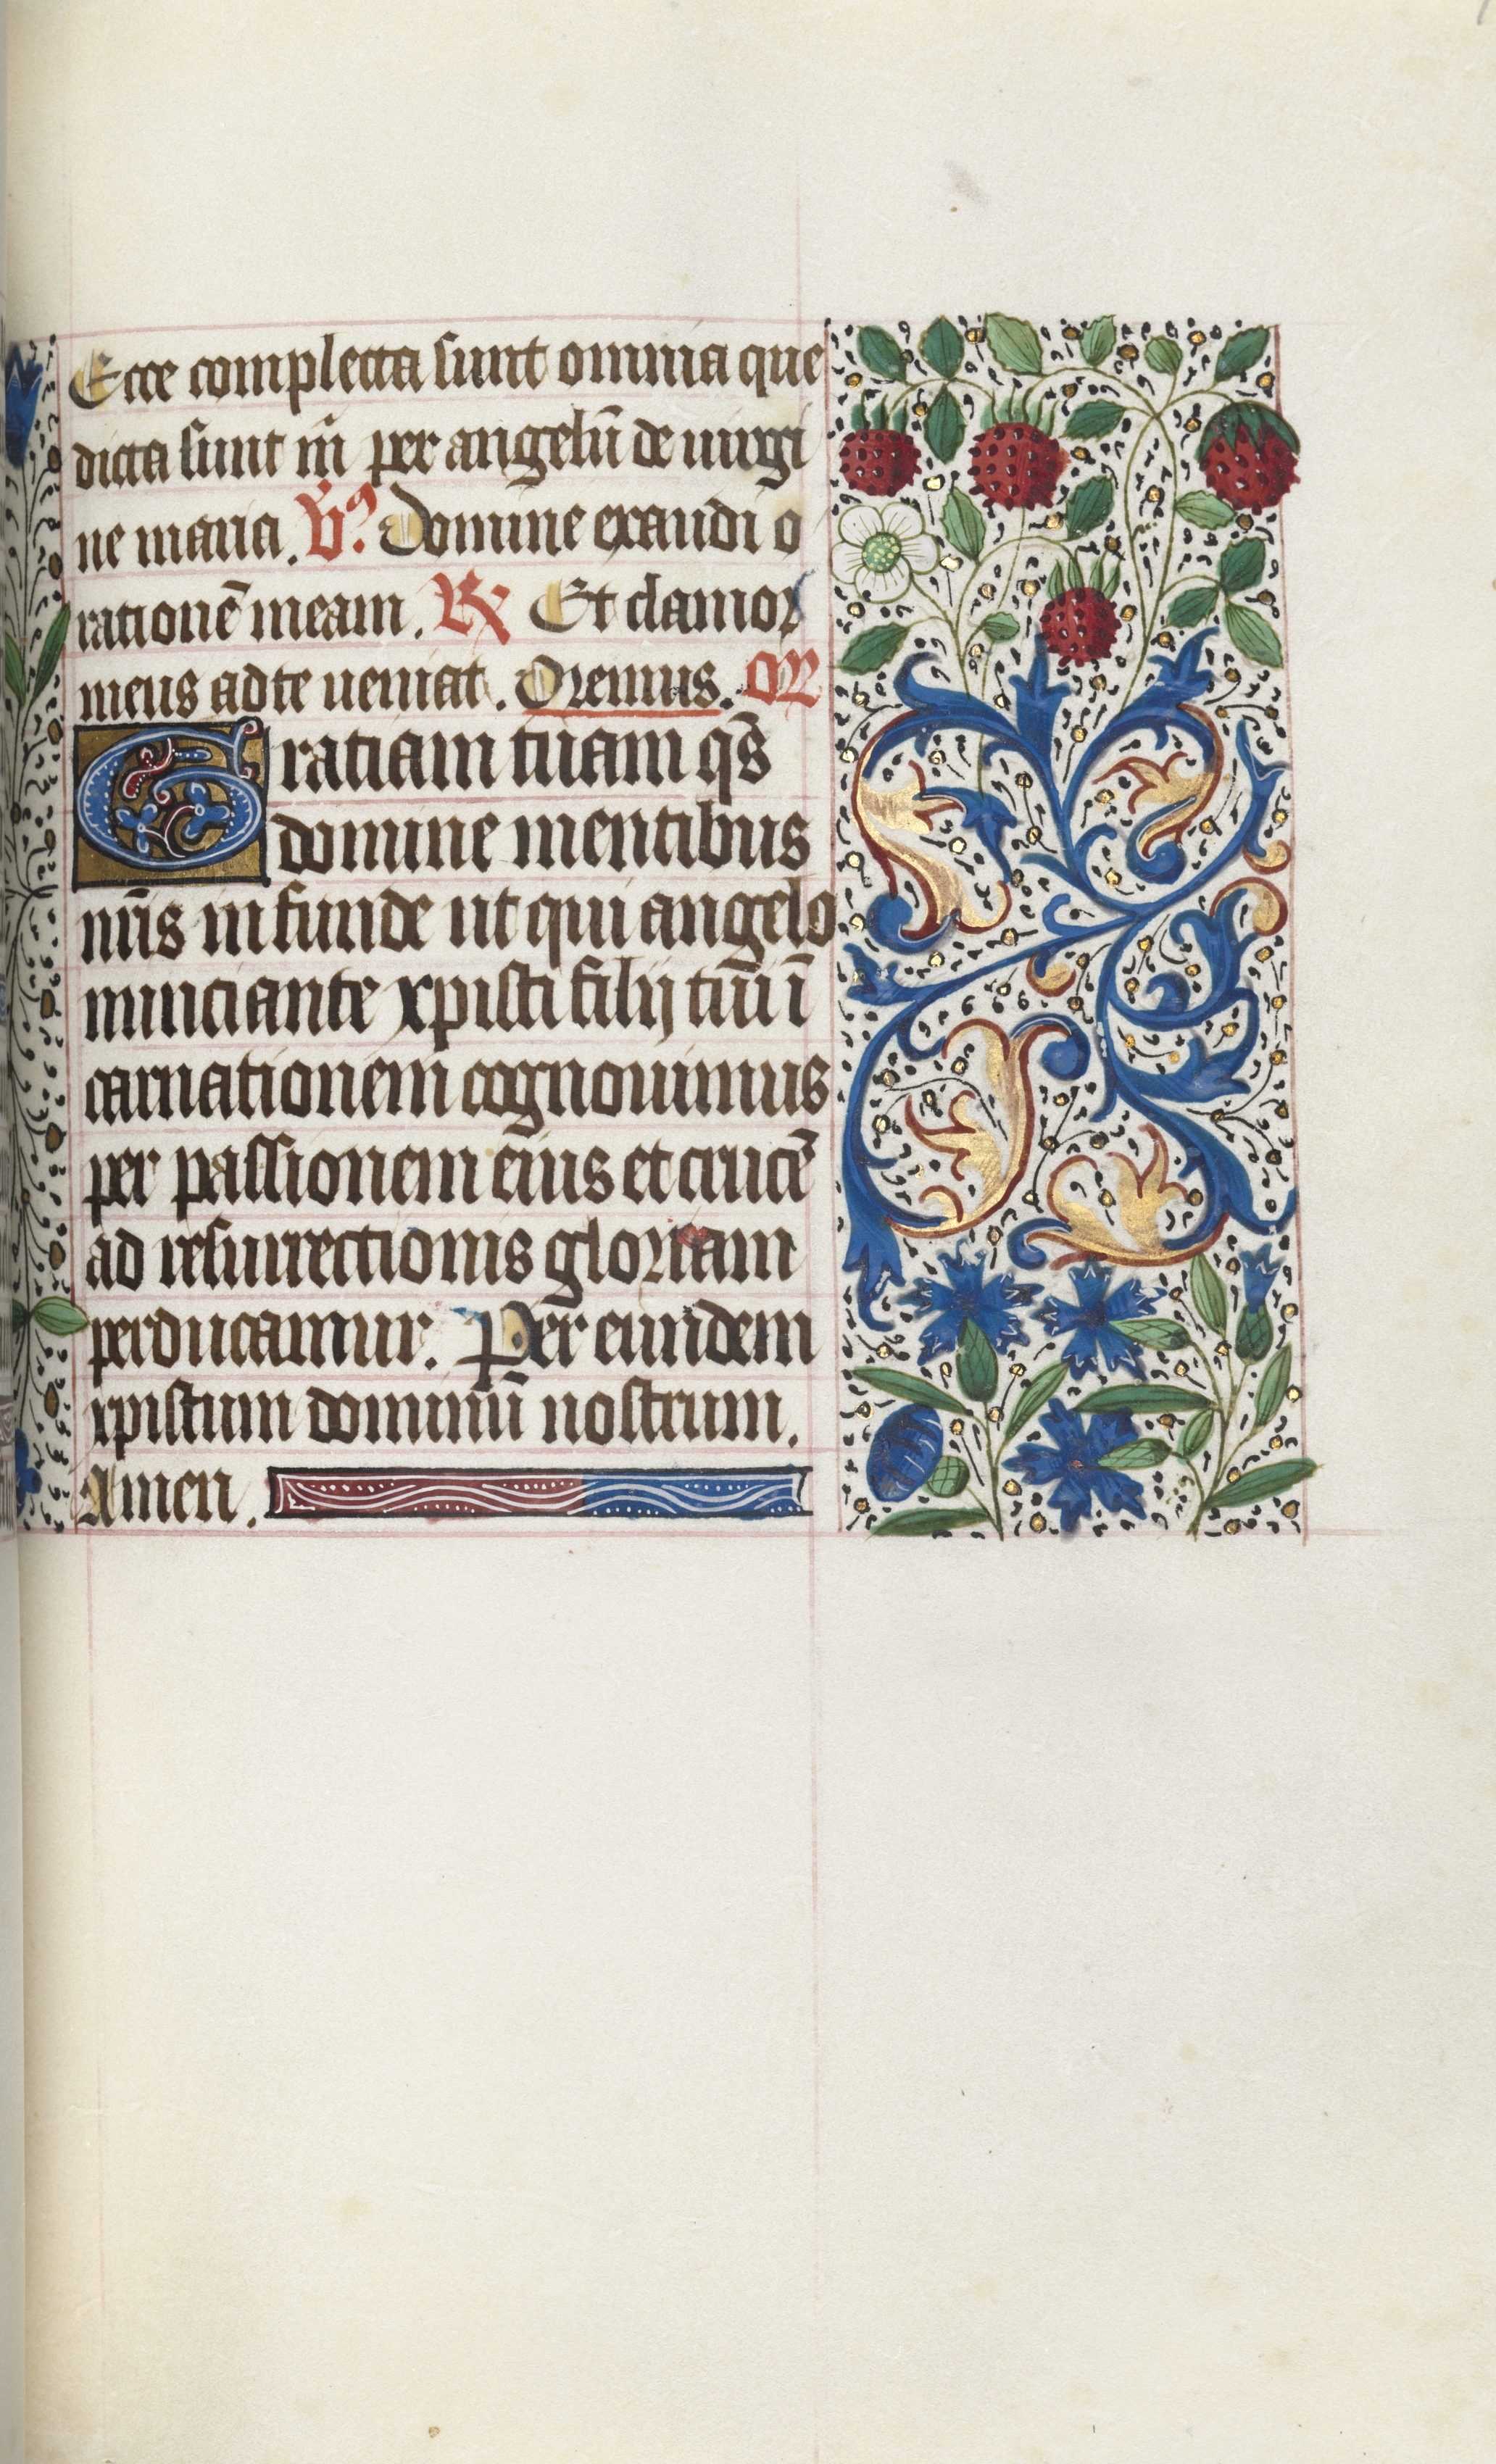 Ecce completta sunt omnia que
dicta sunt in̄ per angelū de uirgi
ne maria. V̄ꝰ Domine exaudi o
rationē meam. ℟ Et clamor
meus ad te ueniat. Oremus. OR
Gratiam tuam qs̄
domine mentibus
nr̄is infunde ut qui angelo
nunciante xpisti filij tuī ī
carnationem cognouimus
per passionem eius et crucē
ad resurrectionis gloriam
perducamur. Per eundem
xpistum dominū nostrum.
Amen.